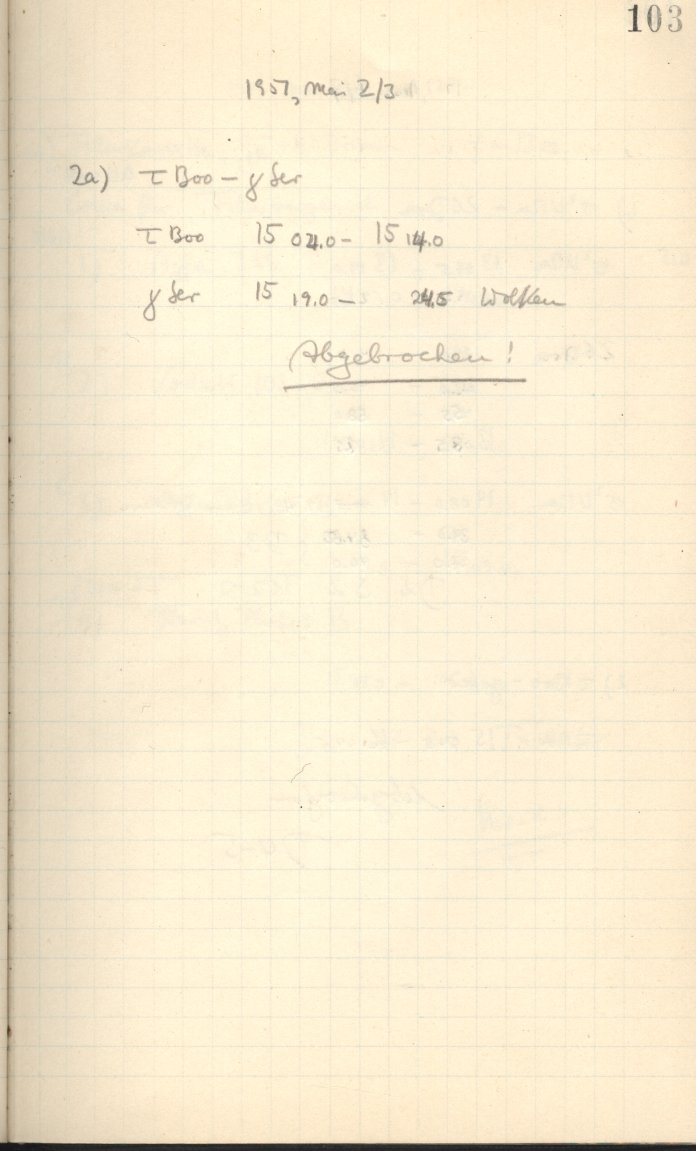 103
1957, Mai 2/3
2a) τ Boo – γ Ser
τ Boo 15 04.0 – 15 14.0
γ Ser 15 19.0 – 24.5 Wolken
Abgebrochen!